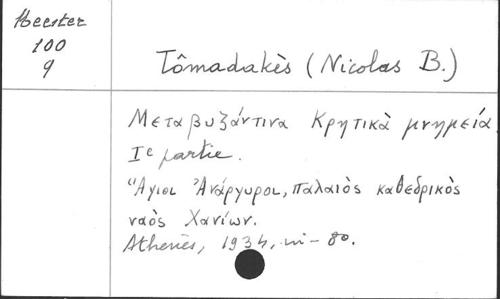 Heester
100
9
Tômadakès (Nicolas B.)
Μεταβυζάντινα Κρητικὰ μνημεῖα
Iᵉ partie.
Ἅγιοι Ἀνάργυροι, παλαιὸς καθεδρικὸς
ναὸς Χανίων.
Athènes, 1934, in-8º.